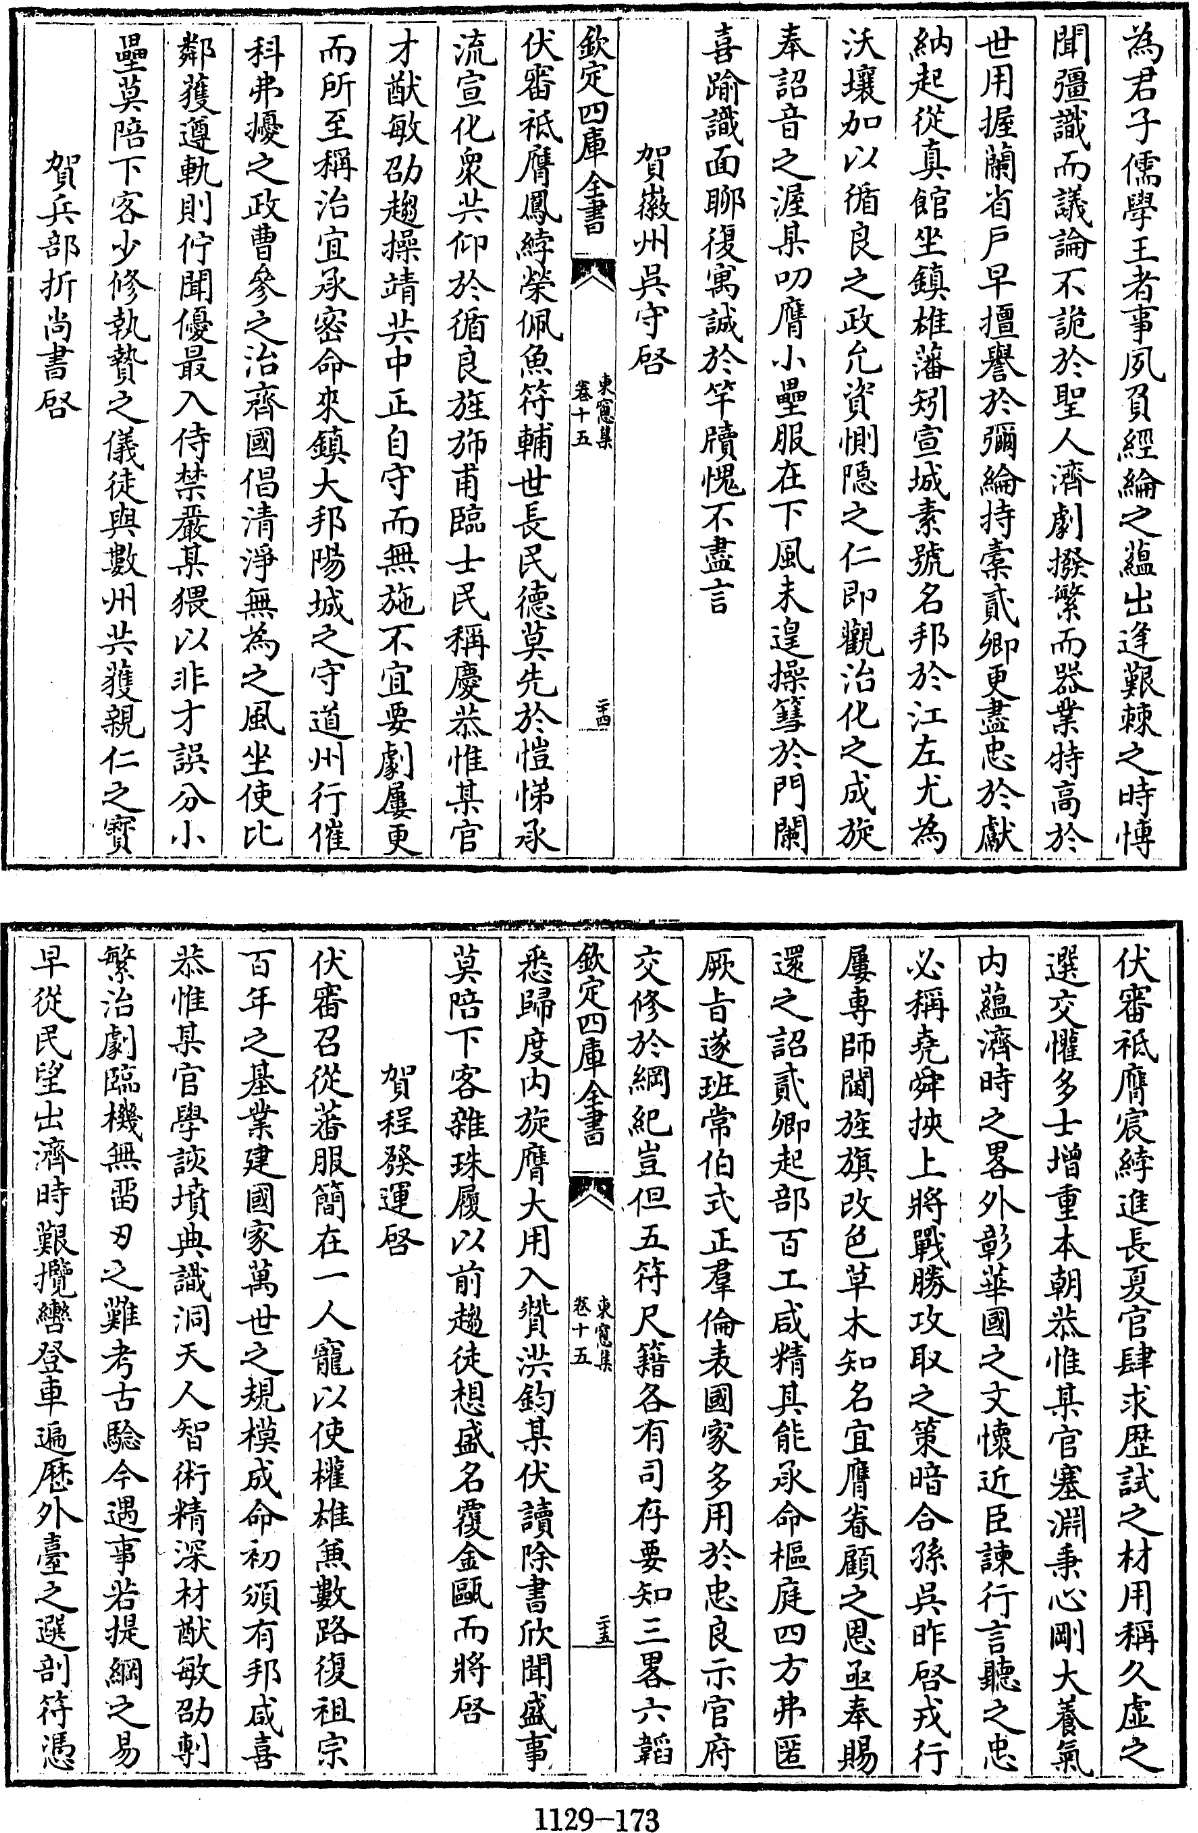 為君子儒學王者事夙負經綸之蘊出逢艱棘之時博
聞彊識而議論不詭於聖人濟劇撥繁而器業特高於
世用握蘭省戶早擅譽於彌綸持橐貳卿更盡忠於獻
納起從真館坐鎮雄藩矧宣城素號名邦於江左尤為
沃壤加以循良之政允資惻隱之仁即觀治化之成旋
奉詔音之渥某叨膺小壘服在下風未遑操篲於門闌
喜踰識面聊復寓誠於竿牘愧不盡言
賀徽州吳守啓
欽定四庫全書
東窓集
卷十五
二十四
伏審祗膺鳳綍榮佩魚符輔世長民德莫先於愷悌承
流宣化衆共仰於循良旌斾甫臨士民稱慶恭惟某官
才猷敏劭趨操靖共中正自守而無施不宜要劇屢更
而所至稱治宜承密命來鎮大邦陽城之守道州行催
科弗擾之政曹參之治齊國倡清淨無為之風坐使比
鄰獲遵軌則佇聞優最入侍禁嚴某猥以非才誤分小
壘莫陪下客少修執贄之儀徒與數州共獲親仁之寳
賀兵部折尚書啓
伏審祗膺宸綍進長夏官肆求歴試之材用稱久虛之
選交懽多士增重本朝恭惟某官塞淵秉心剛大養氣
内蘊濟時之畧外彰華國之文懷近臣諫行言聽之忠
必稱堯舜挾上將戰勝攻取之策暗合孫吳昨啓戎行
屢專師閫旌旗改色草木知名宜膺眷顧之恩亟奉賜
還之詔貳卿起部百工咸精其能承命樞庭四方弗匿
厥旨遂班常伯式正羣倫表國家多用於忠良示官府
交修於綱紀豈但五符尺籍各有司存要知三畧六韜
欽定四庫全書
東窓集
卷十五
二十五
悉歸度内旋膺大用入贊洪鈞某伏讀除書欣聞盛事
莫陪下客雜珠履以前趨徒想盛名覆金甌而將啓
賀程發運啓
伏審召從蕃服簡在一人寵以使權雄兼數路復祖宗
百年之基業建國家萬世之規模成命初頒有邦咸喜
恭惟某官學該墳典識洞天人智術精深材猷敏劭剸
繁治劇臨機無畱刃之難考古驗今遇事若提綱之易
早從民望出濟時艱攬轡登車遍歴外臺之選剖符憑
1129-173